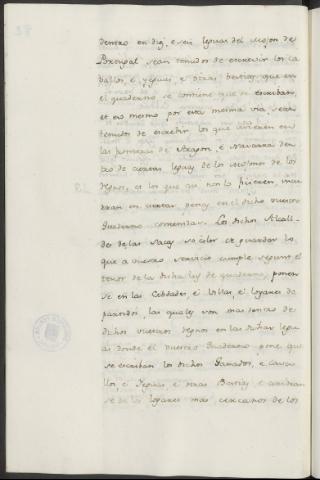 dentro en diez, e seis leguas del Mojon de
Portugal sean tenudos de escrevir los ca
ballos, é yeguas e otras bestias, que en
el quaderno se contiene que se escriban,
et eso mesmo por esta mesma via sean
tenudos de escrebir los que vivieren en
las fronteras de Aragon, é Navarra den
tro de ciertas leguas de los mojones de los
Regnos, et los que asi non lo ficieren, incu
rran en ciertas penas en el dicho vuestro
Quaderno contenidas. Los dichos Alcall-
des de las Sacas por facer et guardar lo
que a vuestro servicio cumple segunt el
tenor de la dicha ley de quaderno, ponen
se en las Cibdades, é Villas, é logares
los quales son mas dentro de
dichos vuestros Regnos en las dichas legu
as donde el vuestro Quaderno pone que
se escriban los dichos Ganados, é Cava
llos, é Yeguas é otras Bestias, e
se de los logares mas cercanos de los